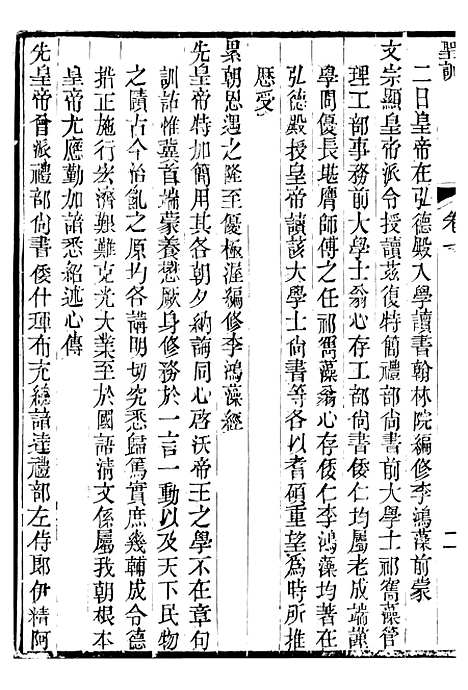 聖訓
卷一
二
二日皇帝在弘德殿入學讀書翰林院編修李鴻藻前蒙
文宗顯皇帝派令授讀茲復特簡禮部尚書前大學士祁寯藻管
理工部事務前大學士翁心存工部尚書倭仁均屬老成端謹
學問優長堪膺師傅之任祁寯藻翁心存倭仁李鴻藻均著在
弘德殿授皇帝讀該大學士尚書等各以耆碩重望為時所推
歷受
累朝恩遇之隆至優極渥編修李鴻藻經
先皇帝特加簡用其各朝夕納誨同心啓沃帝王之學不在章句
訓詁惟冀首端蒙養懋厥身修務於一言一動以及天下民物
之賾古今治亂之原均各講明切究悉歸篤實庶幾輔成令德
措正施行宏濟艱難克光大業至於國語清文係屬我朝根本
皇帝尤應勤加諳悉紹述心傳
先皇帝曾派禮部尚書倭什琿布充總諳達禮部左侍郎伊精阿